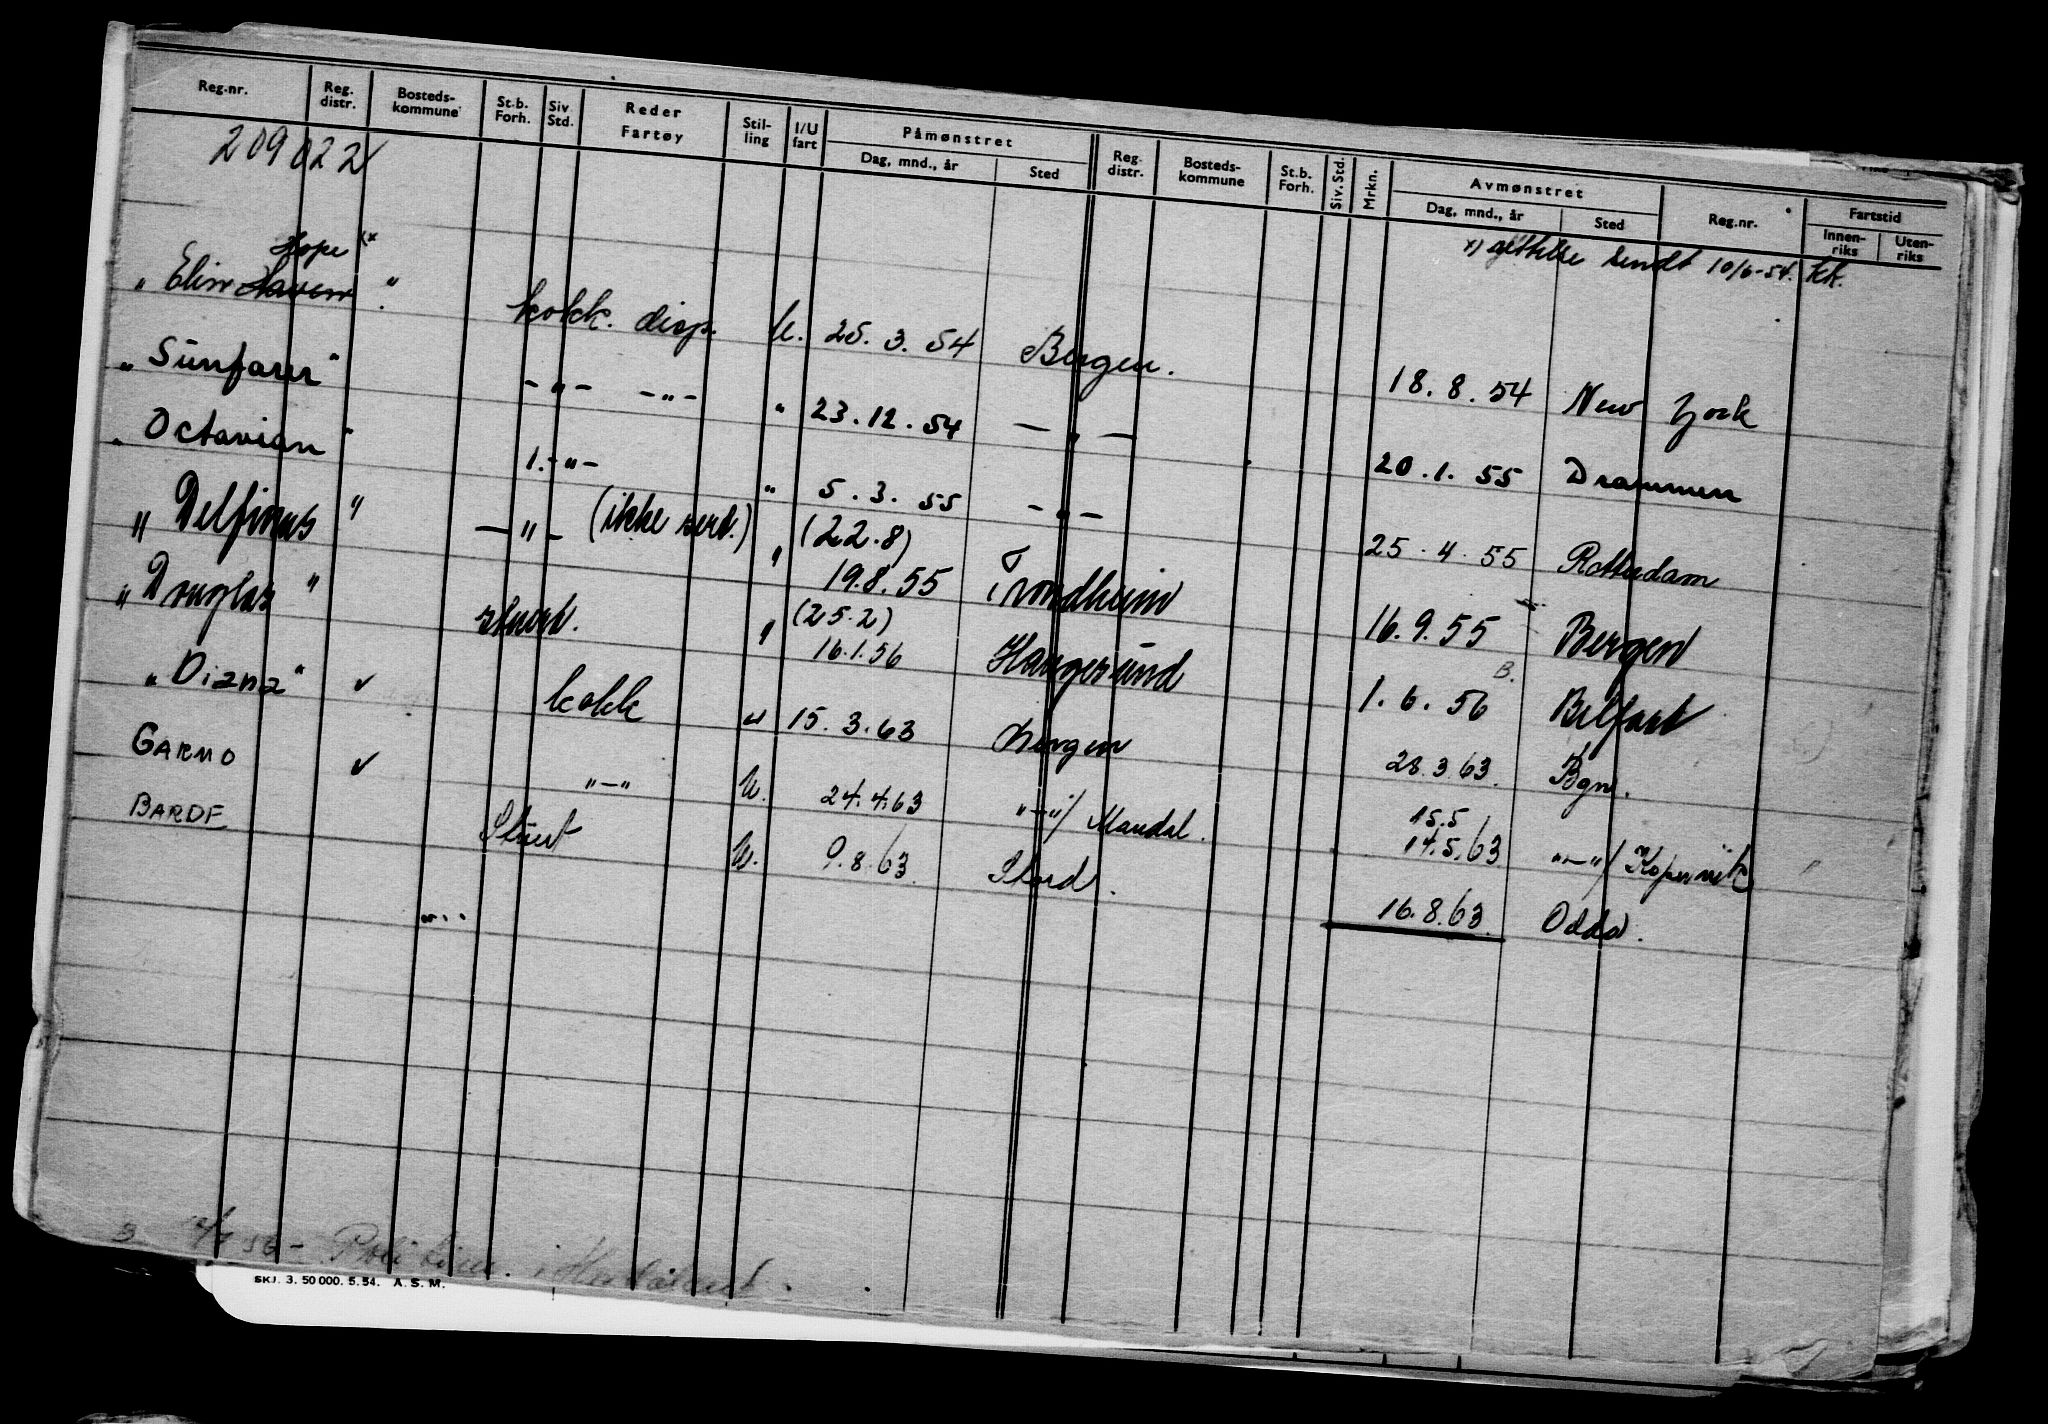 Reg.nr. Reg. distr. Bosteds-kommune St.b. Forh. Siv Std. Reder Fartøy Stil-ling I/U fart Påmønstret Dag, mnd., år Sted Reg. distr. Bosteds-kommune St.b. Forh. Siv. Std. Mrkn. Avmønstret Dag, mnd., år Sted Reg.nr. Fartstid Innen-riks Uten-riks
209022
x) rettelse sendt 10/6-54. kk.
Hope (x
"Elin Haven" kokk. disp. U. 25.3.54 Bergen. 18.8.54 New York
"Sunfarer" -"- -"- " 23.12.54 -"- 20.1.55 Drammen
"Octavian" 1.-"- " 5.3.55 -"- 25.4.55 Rotterdam
"Delfinus" -"- (ikke serd.) " (22.8) 19.8.55 Trondheim 16.9.55 Bergen
"Douglas" stuert. " (25.2) 16.1.56 Haugesund 1.6.56 B. Belfast
"Diana" ✓ kokk " 15.3.63 Bergen 28.3.63. Bgn.
GARMO ✓ "-" U. 24.4.63 "-"/ Mandal. 15.5 14.5.63 "-"/ Kopervik
BARDE Stuert U. 9.8.63. Stord. 16.8.63. Odda.
SKJ. 3. 50 000. 5.54. A. S. M.